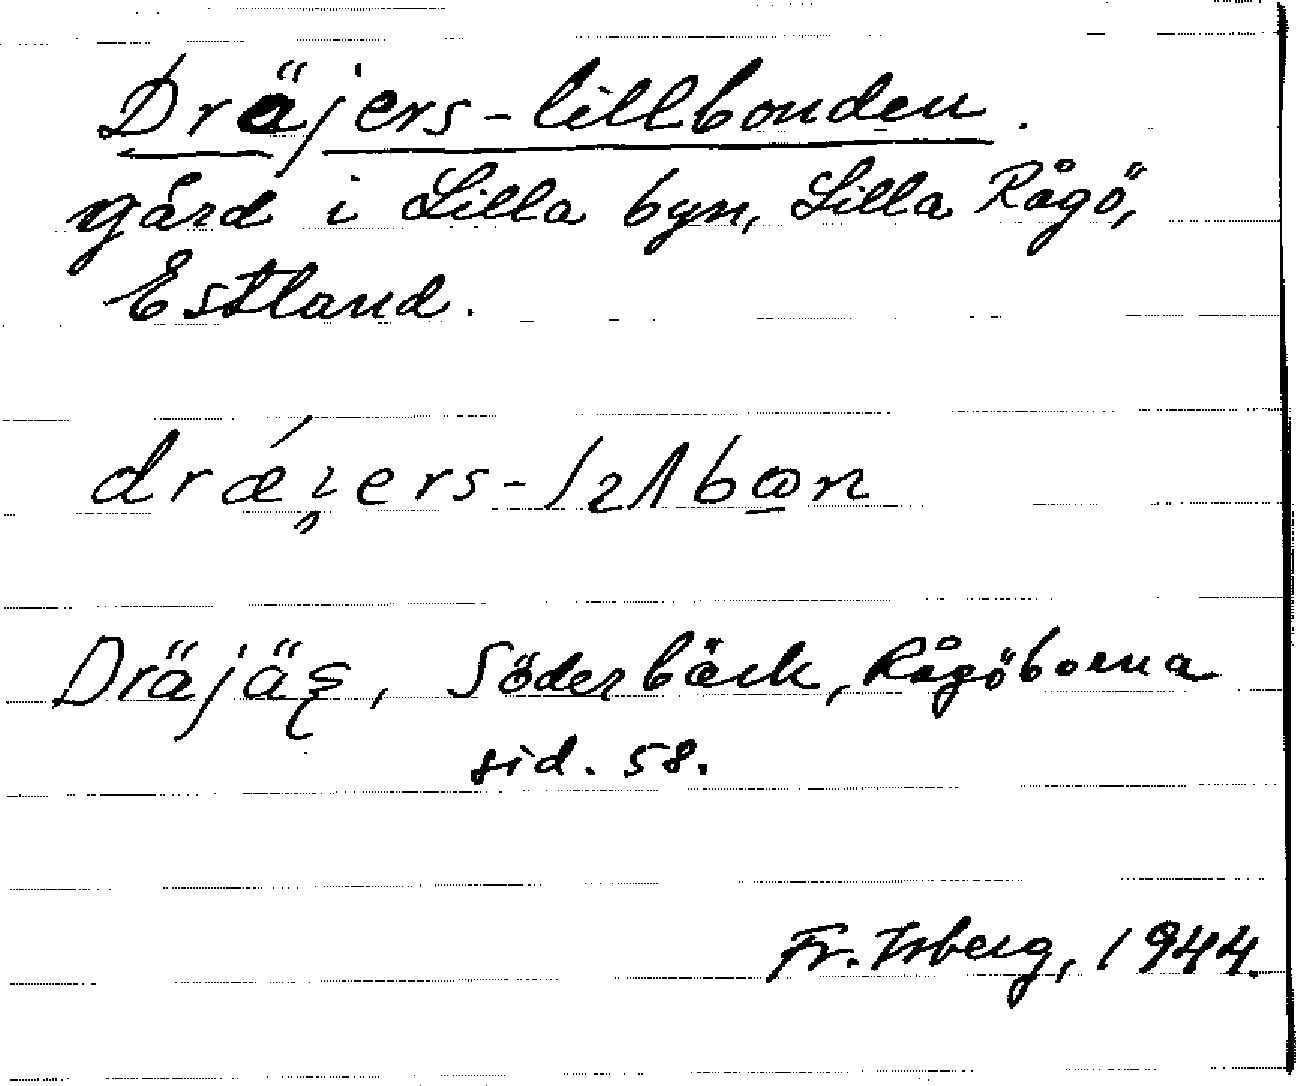 Dräjers-lillbonden.
gård i Lilla byn, Lilla Rågö,
Estland.
Söderbäck, Rågöborna
sid. 58.
Fr. Isberg, 1944.